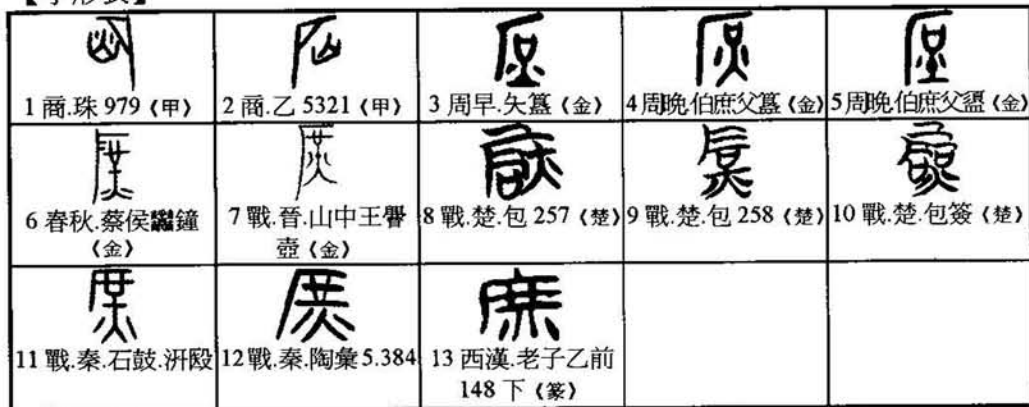 【字形表】
1 商.珠 979《甲》
2 商.乙 5321《甲》
3 周早.夨簋《金》
4 周晚.伯庶父簋《金》
5 周晚.伯庶父盨《金》
6 春秋.蔡侯鐘
《金》
7 戰.晉.山中王
壺《金》
8 戰.楚.包 257《楚》
9 戰.楚.包 258《楚》
10 戰.楚.包簽《楚》
11 戰.秦.石鼓.汧殹
12 戰.秦.陶彙 5.384
13 西漢.老子乙前
148 下《篆》